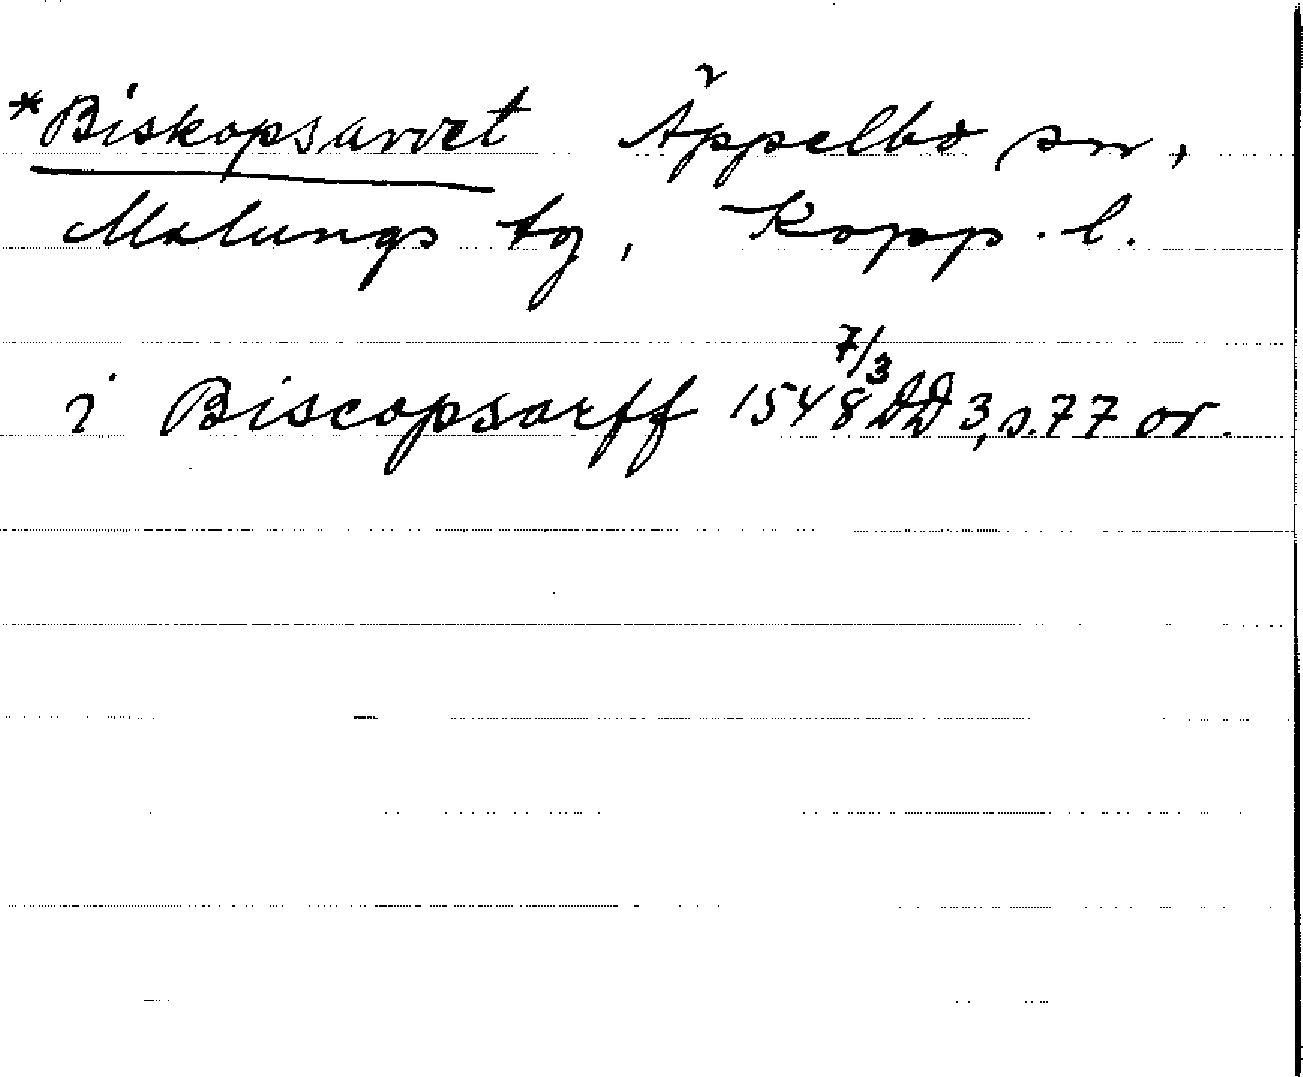 *Biskopsarvet Äppelbo sn,
Malungs tg, Kopp. l.
i Biscopsarff 1548 7/3 DD 3, s. 77 or.